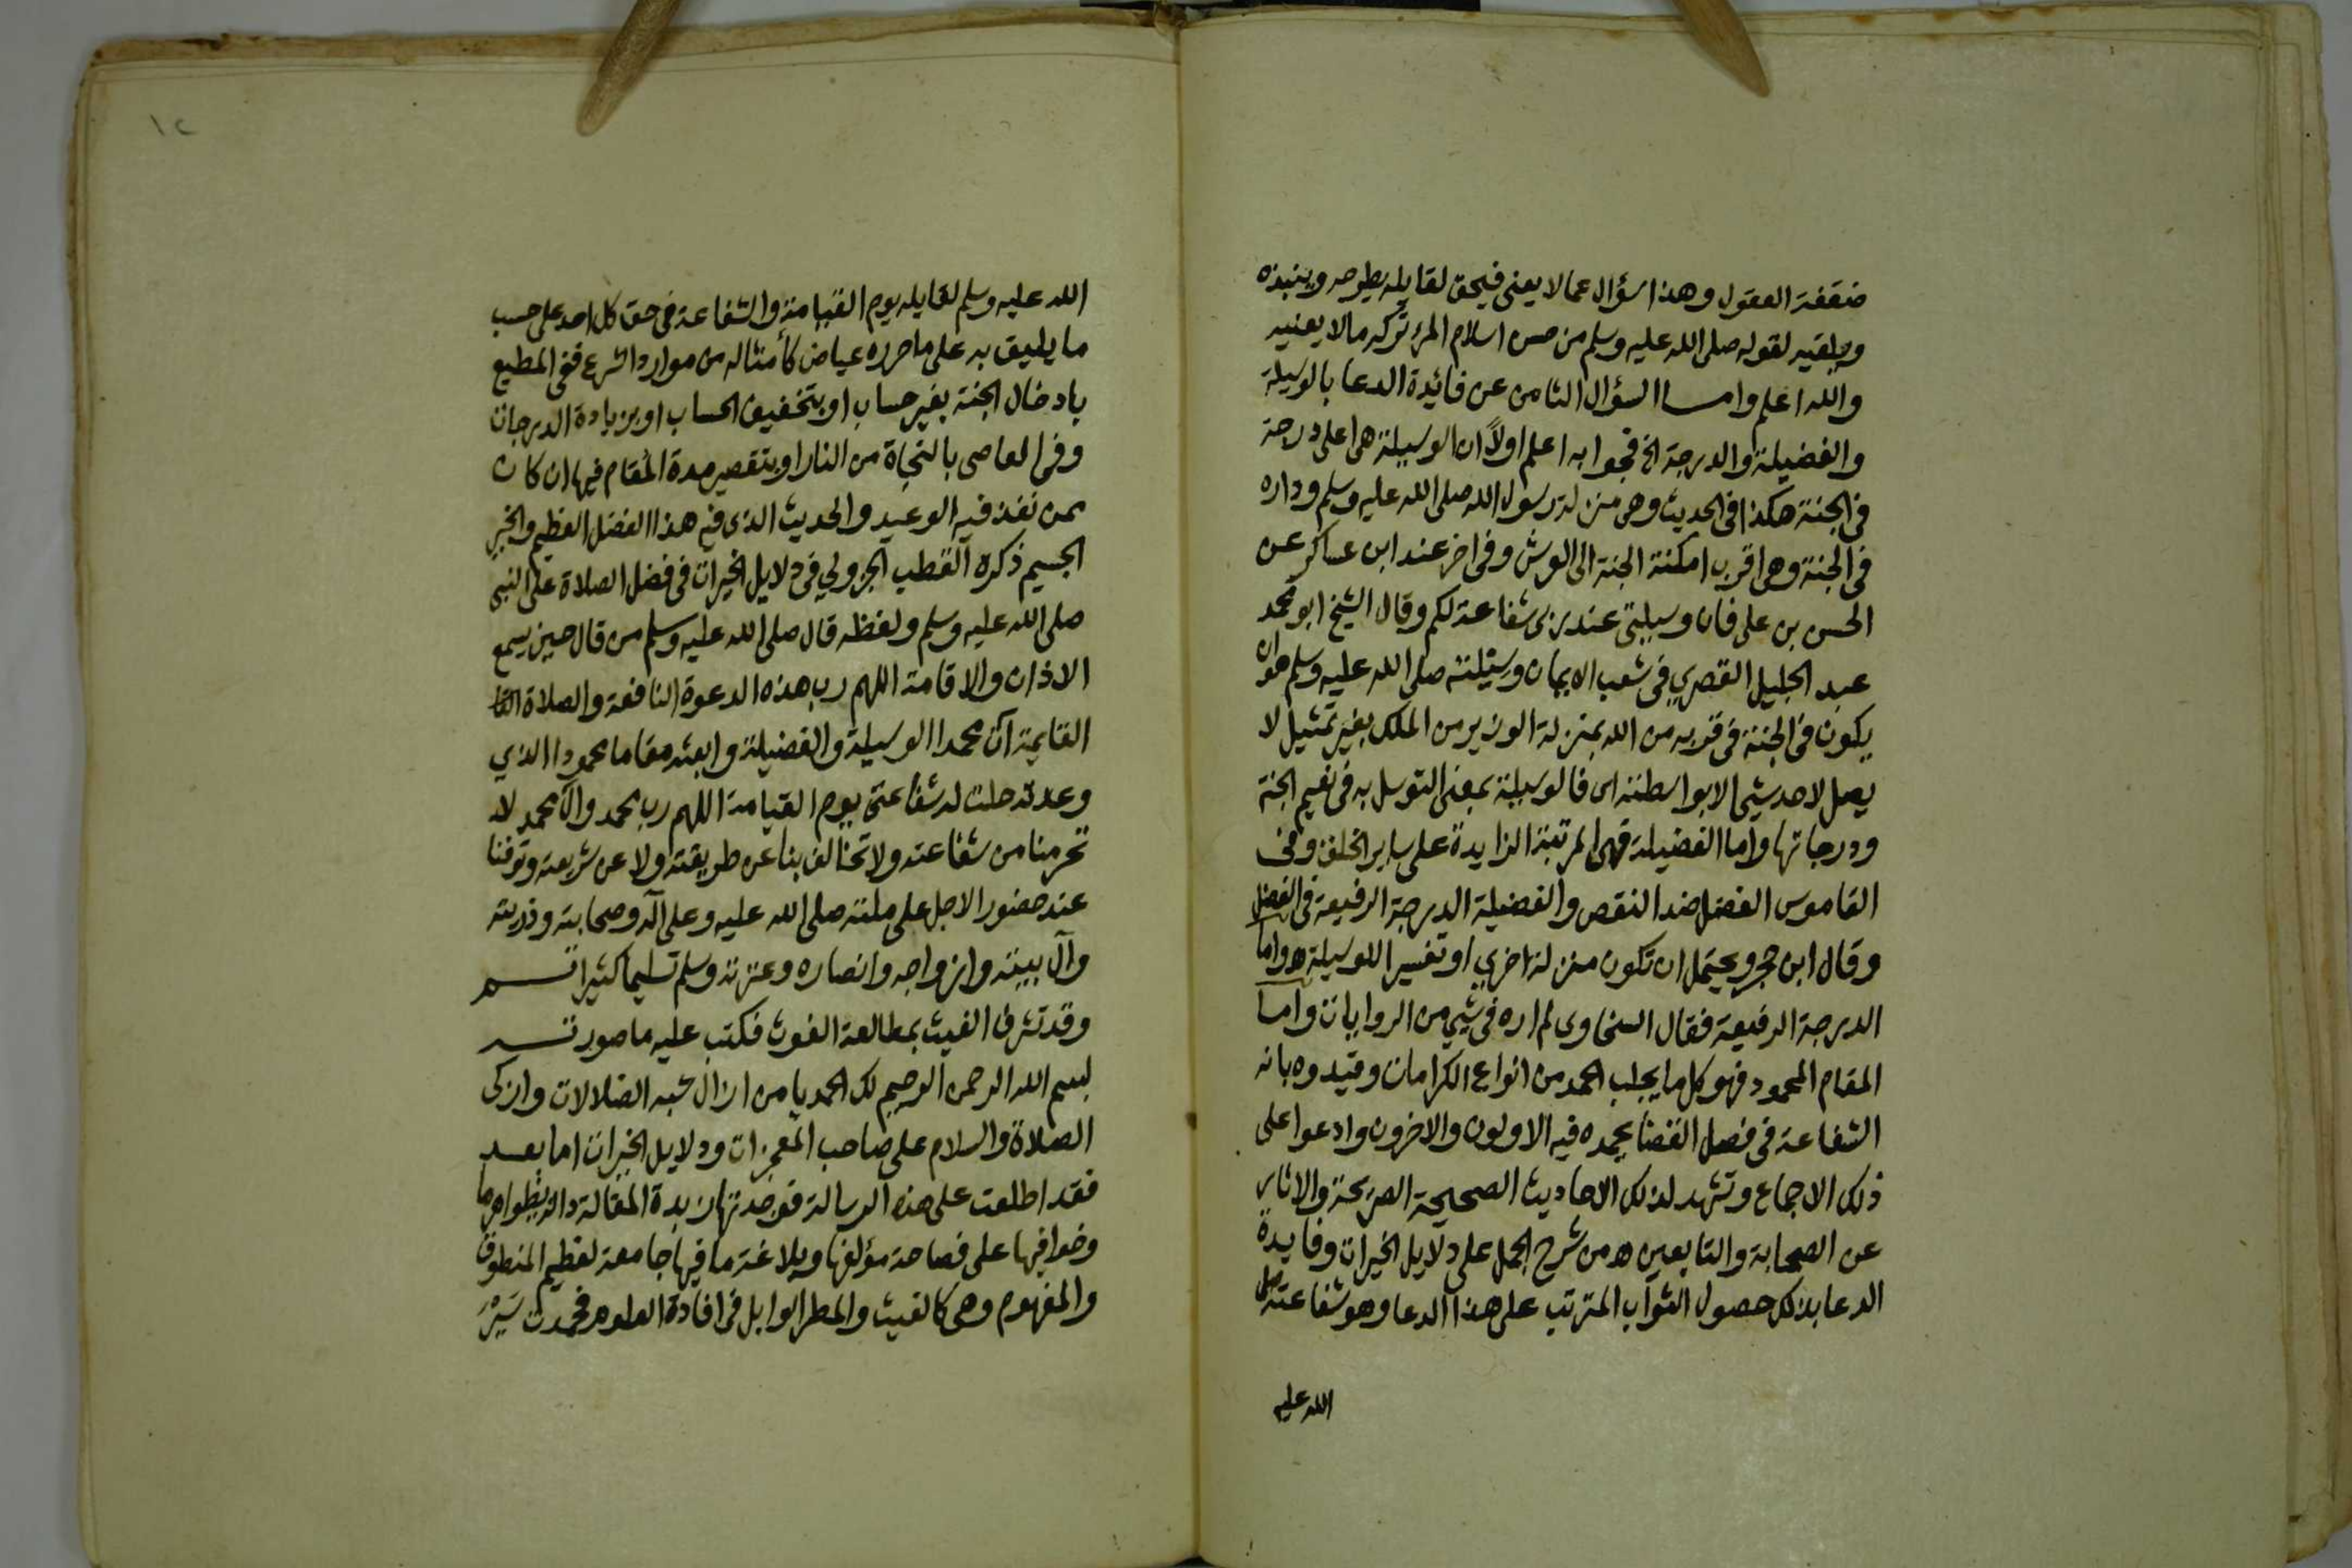 ضعفة العقول وهذا سؤال عما لا يعنى فيحق لقايله يطرحه وينبذه
ويلقيه لقوله صلى الله عليه وسلم من حسن اسلام المرء تركه مالا يعنيه
والله اعلم وامـا السؤال الثامن عن فائدة الدعا بالوسيلة
والفضيلة والدرجة الخ فجوابه اعلم اولاً ان الوسيلة هى اعلى درجة
فى الجنة هكذا فى الحديث وهى منزلة رسول الله صلى الله عليه وسلم وداره
فى الجنة وهى اقرب امكنة الجنة الى العرش وفى اخر عند ابن عساكر عن
الحسن بن على فان وسيلتى عند ربى شفاعة لكم وقال الشيخ ابو محمد
عبد الجليل القصري فى شعب الايمان وسيلته صلى الله عليه وسلم هو ان
يكون فى الجنة فى قربه من الله بمنزلة الوزير من الملك بغير تمثيل لا
يصل لاحد شيئ الا بواسطته اى فالوسيلة بمعنى التوسل به فى نعيم الجنة
ودرجاتها واما الفضيلة فهى المرتبة الزايدة على ساير الخلق وفى
القاموس الفضل ضد النقص والفضيلة الدرجة الرفيعة فى الفضل
وقال ابن حجر ويحتمل ان تكون منزلة اخري او تفسيرا للوسيلة ه واما
الدرجة الرفيعة فقال السخاوى لم اره فى شيئ من الروايات وامـا
المقام المحمود فهو كل ما يجلب الحمد من انواع الكرامات وقيدوه بانه
الشفاعة فى فصل القضا يحمده فيه الاولون والاخرون وادعوا على
ذلك الاجماع وتشهد لذلك الاحاديث الصحيحة الصريحة والاثار
عن الصحابة والتابعين ه من شرح الجمل على دلايل الخيرات وفايدة
الدعا بذلك حصول الثواب المترتب على هذا الدعا وهو شفاعته صلى
الله عليه
١٢
الله عليه وسلم لقايله يوم القيامة والشفاعة فى حق كل احد على حسب
ما يليق به على ما حرره عياض كأمثاله من موارد الشرع ففى المطيع
بادخال الجنة بغير حساب او بتخفيف الحساب او بزيادة الدرجات
وفى العاصى بالنجاة من النار او بتقصير مدة المقام فيها ان كان
ممن نفذ فيه الوعيد والحديث الذى فيه هذا الفضل العظيم والخير
الجسيم ذكره القطب الجزولي فى دلايل الخيرات فى فضل الصلاة على النبى
صلى الله عليه وسلم ولفظه قال صلى الله عليه وسلم من قال حين يسمع
الاذان والاقامة اللهم رب هذه الدعوة النافعة والصلاة القا
القايمة آت محمدا الوسيلة والفضيلة وابعثه مقاما محمودا الذي
وعدته حلت له شفاعتى يوم القيامة اللهم رب محمد وآل محمد لا
تحرمنا من شفاعته ولا تخالف بنا عن طريقته ولا عن شريعته وتوفنا
عند حضور الاجل على ملته صلى الله عليه وعلى آله وصحابته وذريته
وآل بيته وازواجه وانصاره وعترته وسلم تسليما كثيرا تـم
وقد تشرف الغيث بمطالعة الغوث فكتب عليه ما صورتـه
بسم الله الرحمن الرحيم لك الحمد يا من ازال شبه الضلالات وازكى
الصلاة والسلام على صاحب المعجزات ودلايل الخيرات اما بعـد
فقد اطلعت على هذه الرسالة فوجدتها زبدة المقالة دالة بظواهرها
وخوافيها على فصاحة مؤلفها وبلاغة ما فيها جامعة لعظيم المنطوق
والمفهوم وهى كالغيث والمطر الوابل فى افادة العلوم فحمدت سيره